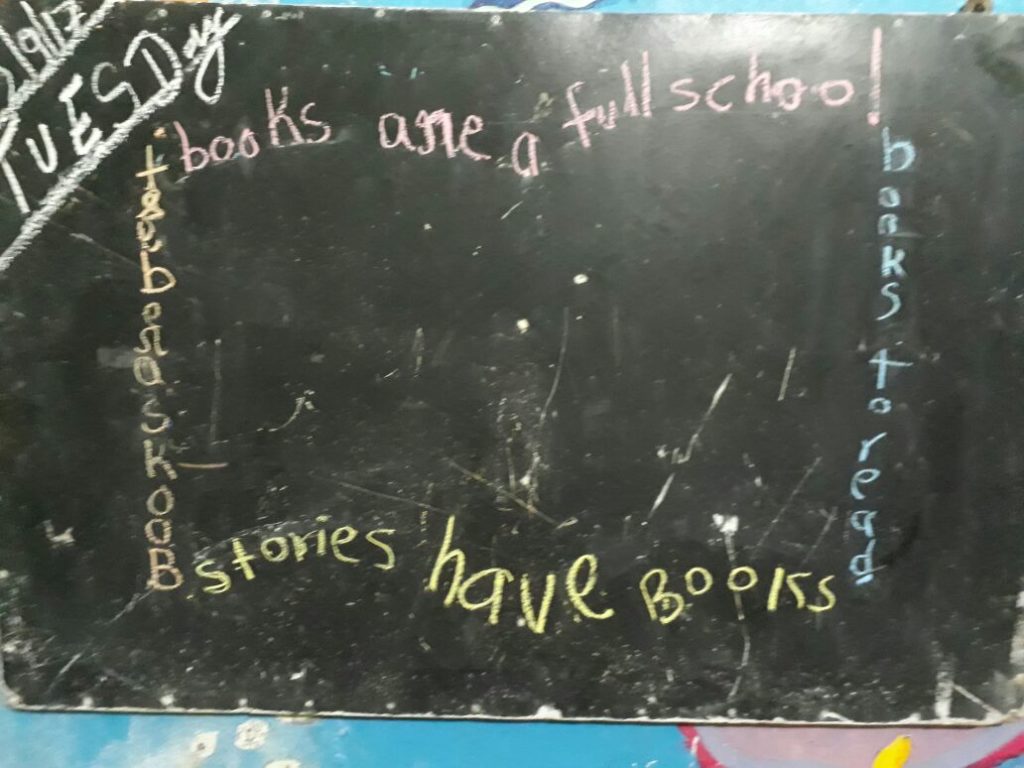 TUESDay
books are a full school
books to read
stories have BOOKs
BOOKS are best